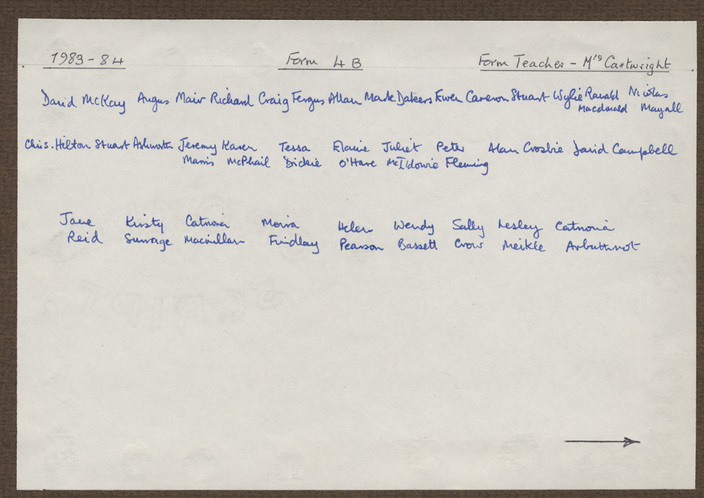 1983-84 Form 4B Form Teacher - Mrs Cartwright
David McKay Angus Mair Richard Craig Fergus Allan Mark Dateers Ewen Cameron Stuart Wylie Ranald Nicolas
Macdonald Mayall
Chris. Hilton Stuart Ashworth Jeremy Karen Tessa Elaine Juliet Peter Alan Crosbie David Campbell
Morris McPhail Dickie O'Hare McIldowie Fleming
Jane Kirsty Catriona Moira Helen Wendy Sally Lesley Catriona
Reid Macmillan Findlay Pearson Bassett Crow Meikle Arbuthnot